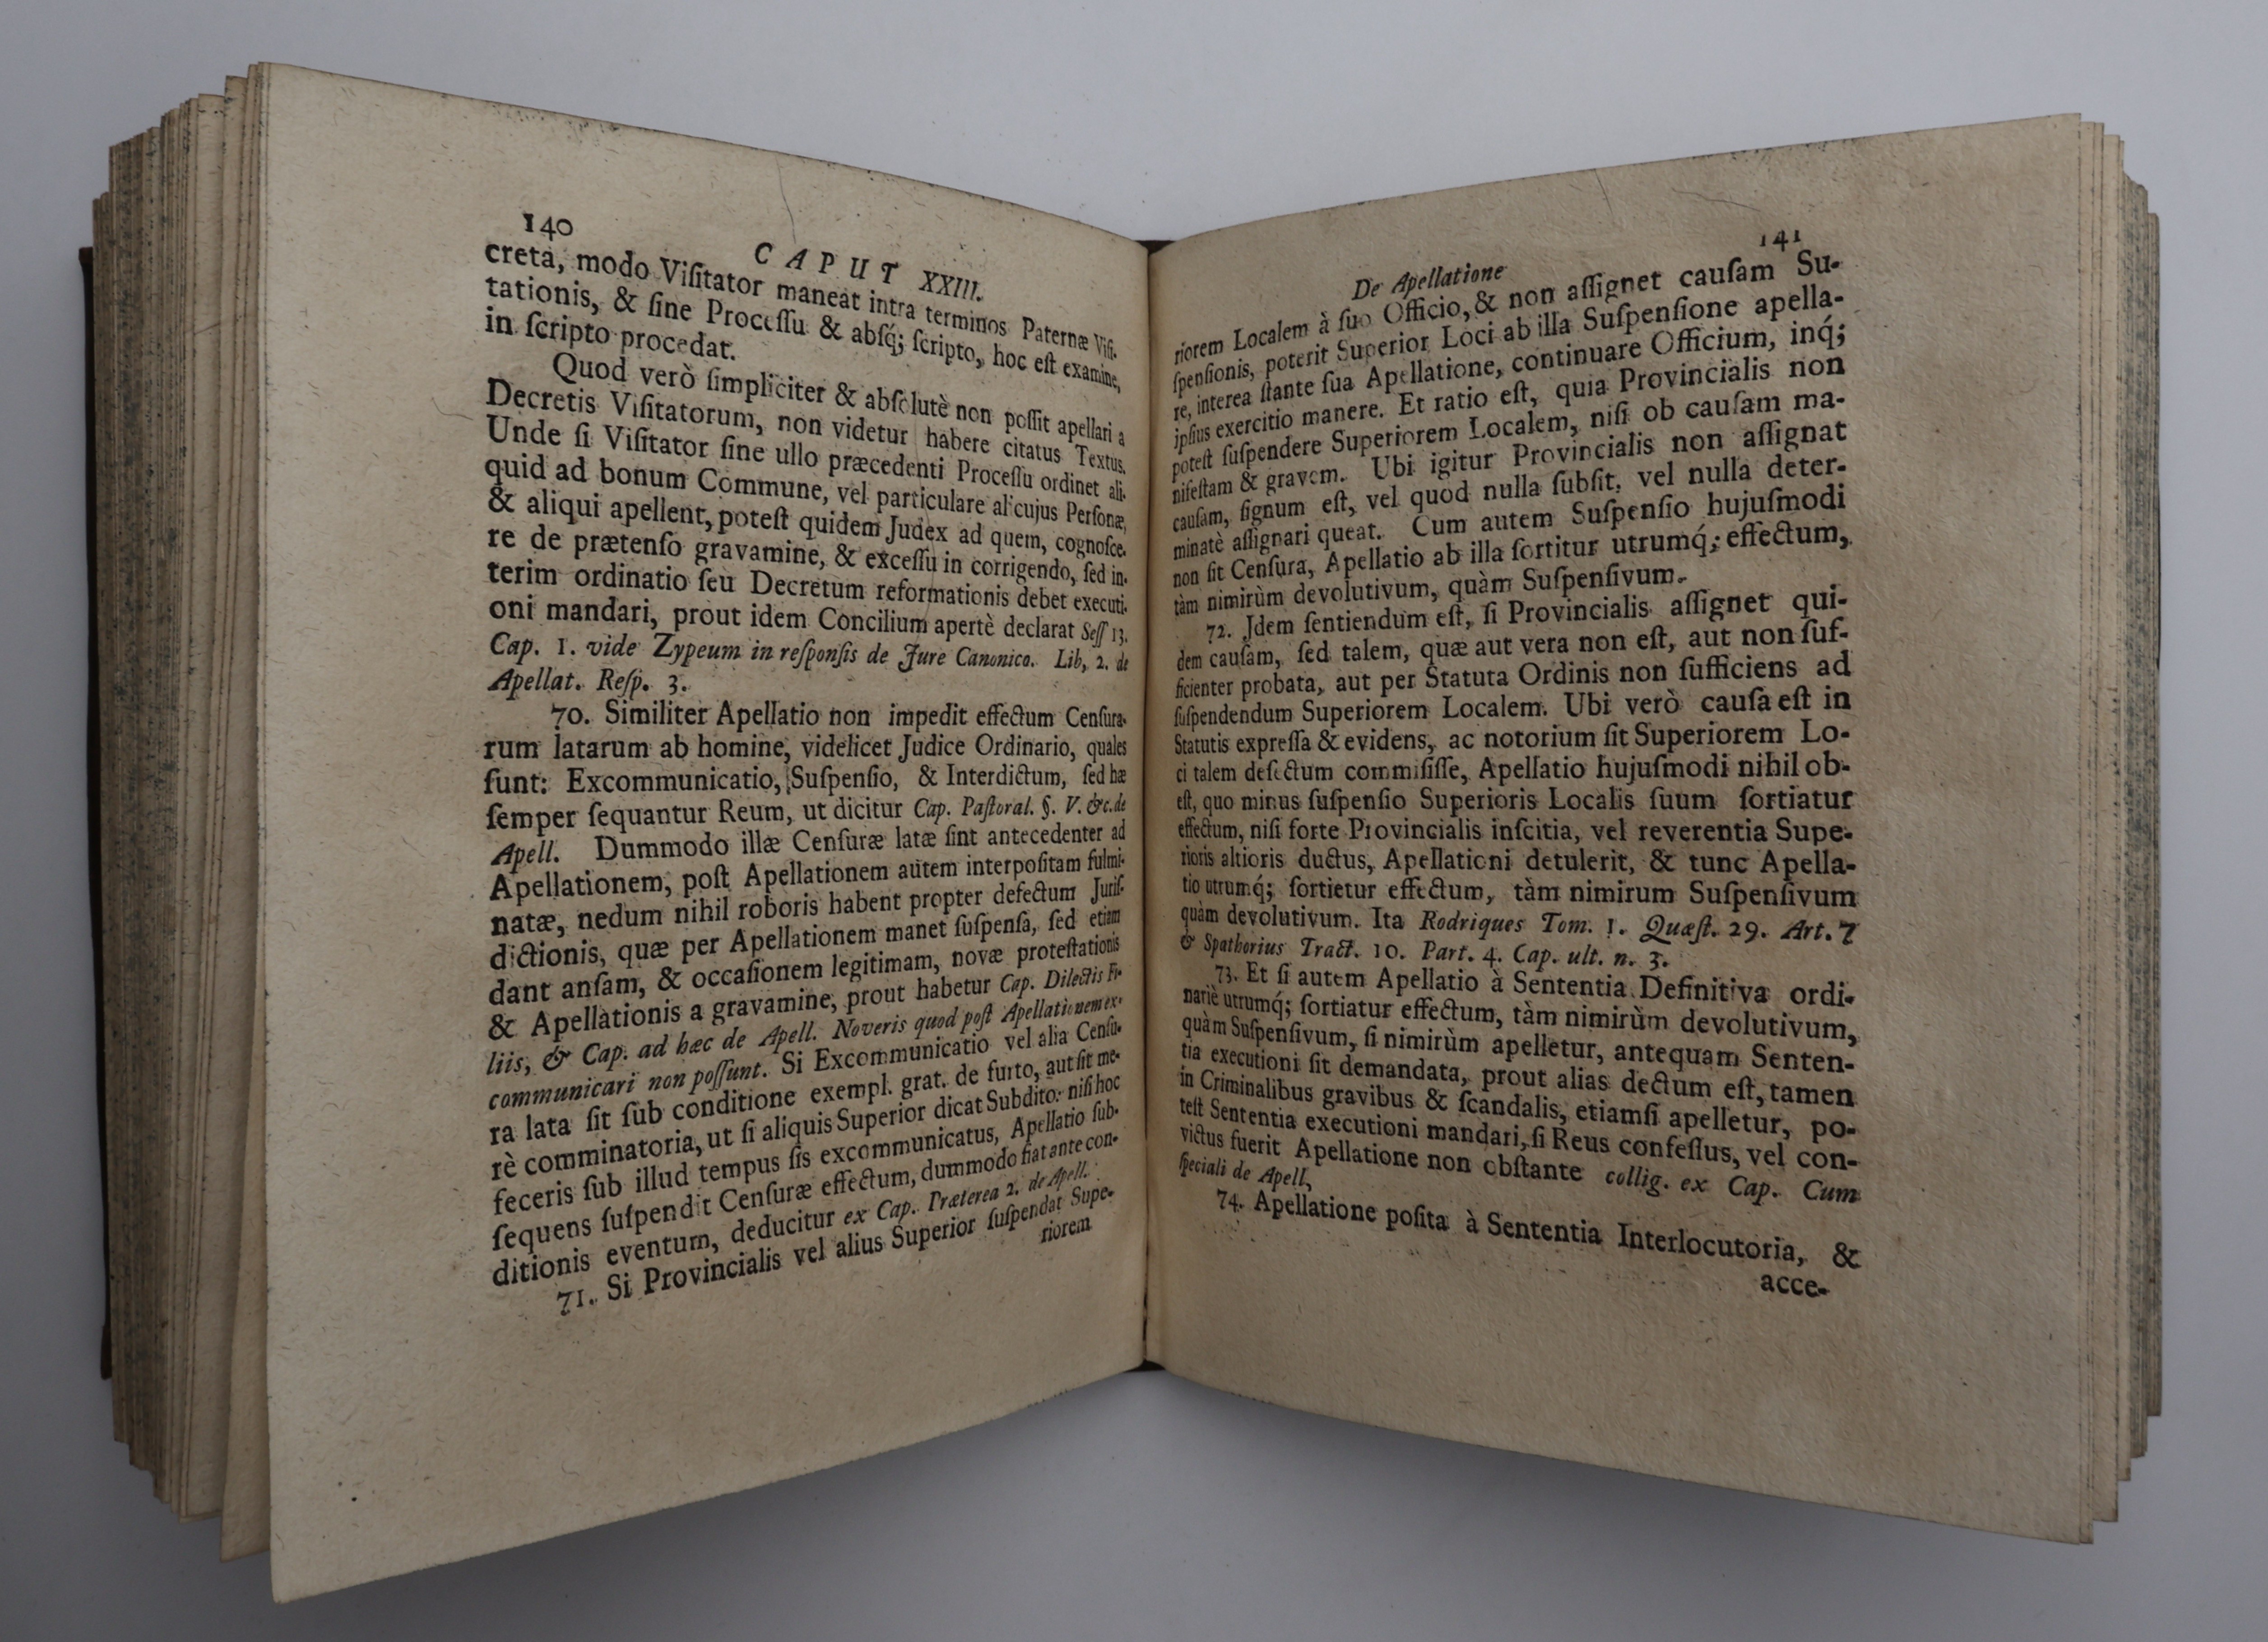 140
CAPUT XXIII.
creta, modo Viſitator maneat intra terminos Paternæ Viſi-
tationis, & ſine Proceſſu & abſq́; ſcripto, hoc eſt examine,
in ſcripto procedat.
Quod verò ſimpliciter & abſolutè non poſſit apellari a
Decretis Viſitatorum, non videtur habere citatus Textus.
Unde ſi Viſitator ſine ullo præcedenti Proceſſu ordinet ali-
quid ad bonum Commune, vel particulare alicujus Perſonæ,
& aliqui apellent, poteſt quidem Judex ad quem, cognoſce-
re de prætenſo gravamine, & exceſſu in corrigendo, ſed in-
terim ordinatio ſeu Decretum reformationis debet executi-
oni mandari, prout idem Concilium apertè declarat Seſſ 13.
Cap. 1. vide Zypeum in reſponſis de Jure Canonico. Lib, 2. de
Apellat. Reſp. 3.
70. Similiter Apellatio non impedit effectum Cenſura-
rum latarum ab homine, videlicet Judice Ordinario, quales
ſunt: Excommunicatio, Suſpenſio, & Interdictum, ſed hæ
ſemper ſequantur Reum, ut dicitur Cap. Paſtoral. §. V. &c. de
Apell. Dummodo illæ Cenſuræ latæ ſint antecedenter ad
Apellationem, poſt Apellationem autem interpoſitam fulmi-
natæ, nedum nihil roboris habent propter defectum Juriſ-
dictionis, quæ per Apellationem manet ſuſpenſa, ſed etiam
dant anſam, & occaſionem legitimam, novæ proteſtationis
& Apellationis a gravamine, prout habetur Cap. Dilectis Fi-
liis, & Cap. ad hæc de Apell. Noveris quod poſt Apellationem ex-
communicari non poſſunt. Si Excommunicatio vel alia Cenſu-
ra lata ſit ſub conditione exempl. grat. de furto, aut ſit me-
rè comminatoria, ut ſi aliquis Superior dicat Subdito: niſi hoc
feceris ſub illud tempus ſis excommunicatus, Apellatio ſub-
ſequens ſuſpendit Cenſuræ effectum, dummodo fiat ante con-
ditionis eventum, deducitur ex Cap. Præterea 2. de Apell.
71. Si Provincialis vel alius Superior ſuſpendat Supe-
riorem
141
De Apellatione
riorem Localem à ſuo Officio, & non aſſignet cauſam Su-
ſpenſionis, poterit Superior Loci ab illa Suſpenſione apella-
re, interea ſtante ſua Apellatione, continuare Officium, inq́;
ipſius exercitio manere. Et ratio eſt, quia Provincialis non
poteſt ſuſpendere Superiorem Localem, niſi ob cauſam ma-
nifeſtam & gravem. Ubi igitur Provincialis non aſſignat
cauſam, ſignum eſt, vel quod nulla ſubſit, vel nulla deter-
minatè aſſignari queat. Cum autem Suſpenſio hujuſmodi
non ſit Cenſura, Apellatio ab illa ſortitur utrumq́; effectum,
tàm nimirùm devolutivum, quàm Suſpenſivum.
72. Jdem ſentiendum eſt, ſi Provincialis aſſignet qui-
dem cauſam, ſed talem, quæ aut vera non eſt, aut non ſuf-
ficienter probata, aut per Statuta Ordinis non ſufficiens ad
ſuſpendendum Superiorem Localem. Ubi verò cauſa eſt in
Statutis expreſſa & evidens, ac notorium ſit Superiorem Lo-
ci talem defectum commiſiſſe, Apellatio hujuſmodi nihil ob-
eſt, quo minus ſuſpenſio Superioris Localis ſuum ſortiatur
effectum, niſi forte Provincialis inſcitia, vel reverentia Supe-
rioris altioris ductus, Apellationi detulerit, & tunc Apella-
tio utrumq́; ſortietur effectum, tàm nimirum Suſpenſivum
quàm devolutivum. Ita Rodriques Tom. 1. Quæſt. 29. Art. 7
& Spathorius Tract. 10. Part. 4. Cap. ult. n. 3.
73. Et ſi autem Apellatio à Sententia Definitiva ordi-
nariè utrumq́; ſortiatur effectum, tàm nimirùm devolutivum,
quàm Suſpenſivum, ſi nimirùm apelletur, antequam Senten-
tia executioni ſit demandata, prout alias dectum eſt, tamen
in Criminalibus gravibus & ſcandalis, etiamſi apelletur, po-
teſt Sententia executioni mandari, ſi Reus confeſſus, vel con-
victus fuerit Apellatione non obſtante collig. ex Cap. Cum
ſpeciali de Apell,
74. Apellatione poſita à Sententia Interlocutoria, &
acce-